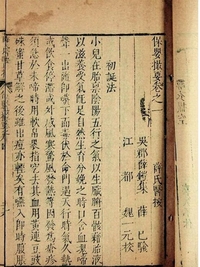 保嬰撮要卷之一
薛氏醫按
吳郡薛鎧集 薛己驗
江都 魏元校
初誕法
小兒在胎禀陰陽五行之氣以生臟腑百骸藉胎液
以滋養受氣既足自然生育分娩之時口含血塊啼
聲一出隨即嚥下而毒伏於命門遇天行時氣久熱
或飲食停滯或外感風寒驚風發熱等因發爲瘡疹
須急於未啼時用軟帛裹指挖去其血用黃連豆豉
硃蜜甘草解之後雖出痘亦輕矣有嚥入即時